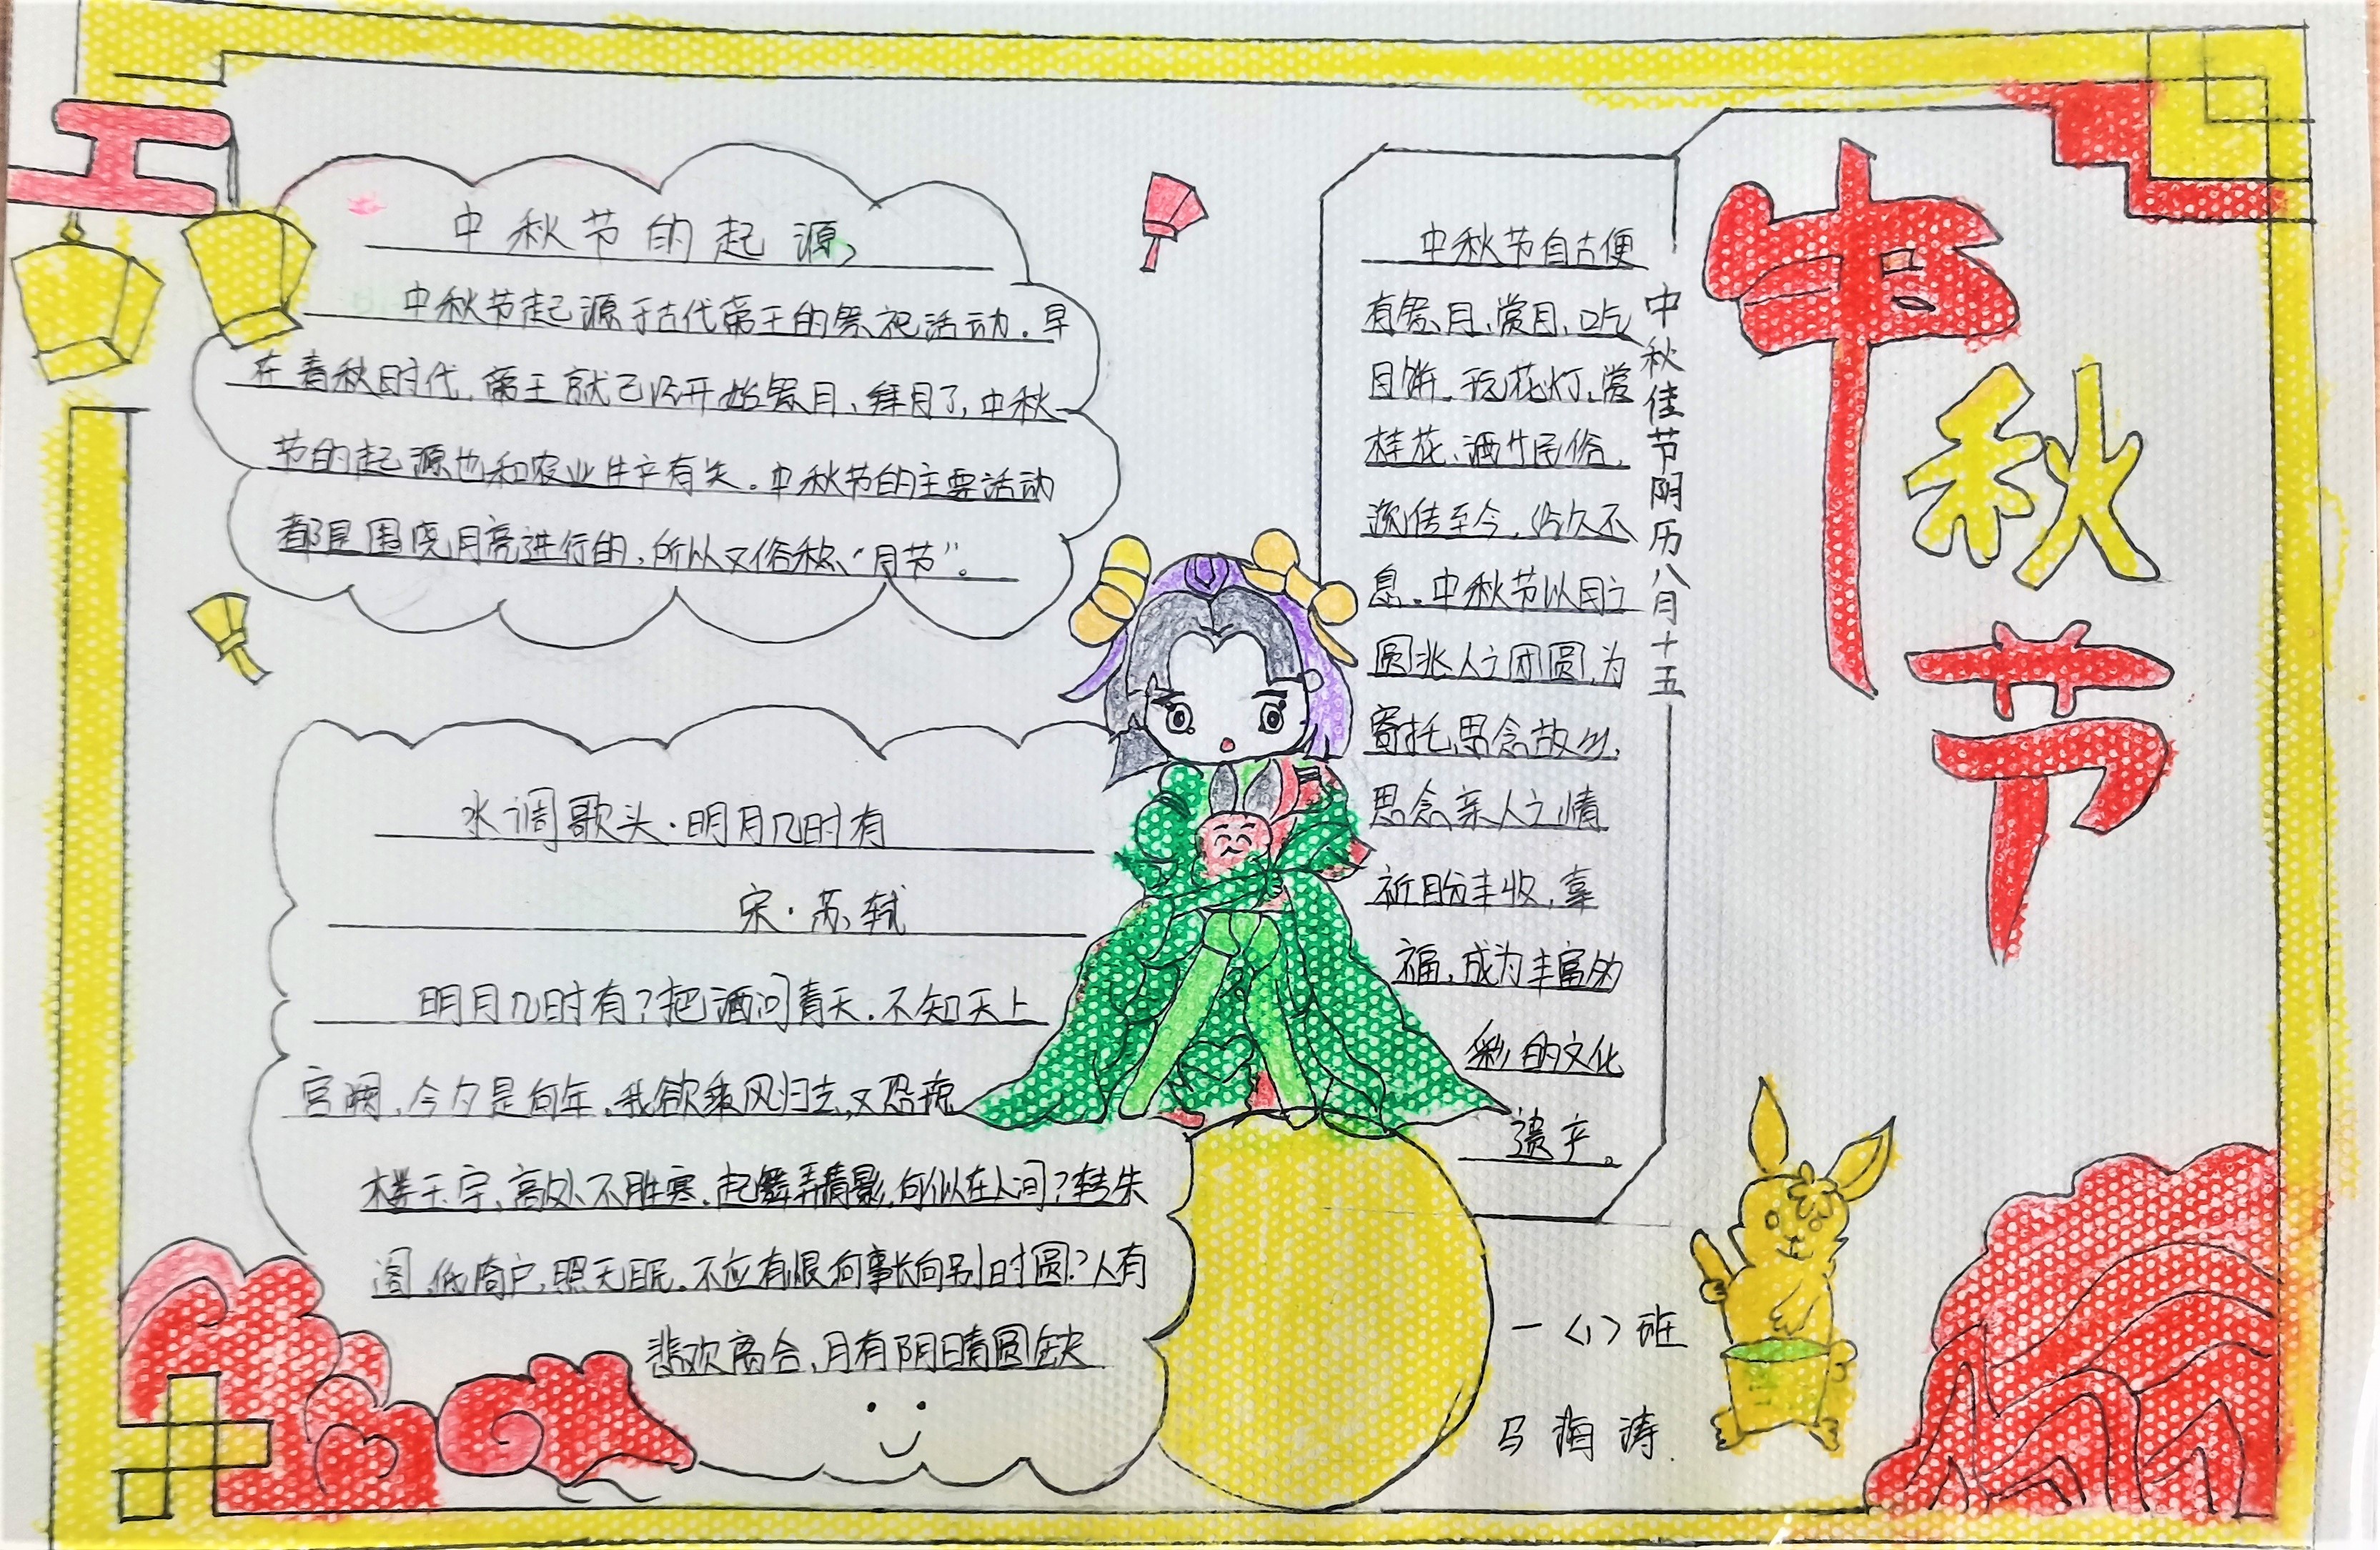 中秋节的起源
中秋节起源于古代帝王的祭祀活动.早
在春秋时代,帝王就已经开始祭月、拜月了,中秋
节的起源也和农业生产有关。中秋节的主要活动
都是围绕月亮进行的,所以又俗称“月节”。
水调歌头·明月几时有
宋·苏轼
明月几时有?把酒问青天.不知天上
宫阙,今夕是何年.我欲乘风归去,又恐琼
楼玉宇,高处不胜寒.起舞弄清影,何似在人间?转朱
阁,低倚户,照无眠.不应有恨何事长向别时圆?人有
悲欢离合,月有阴晴圆缺
中秋节自古便
有祭月、赏月、吃
月饼、玩花灯、赏
桂花、酒什民俗,
流传至今,经久不
息。中秋节以月之
圆兆人之团圆,为
寄托思念故乡,
思念亲人之情
祈盼丰收,幸
福,成为丰富的
彩的文化
遗产。
中秋佳节阴历八月十五
中秋节
一〈1〉班
马海涛